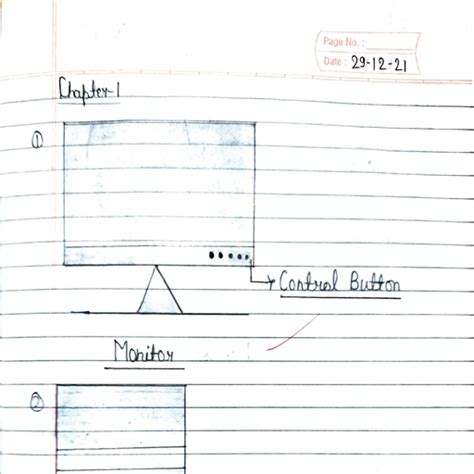 Page No. :
Date : 29-12-21
Chapter-1
①
Control Button
Monitor
②